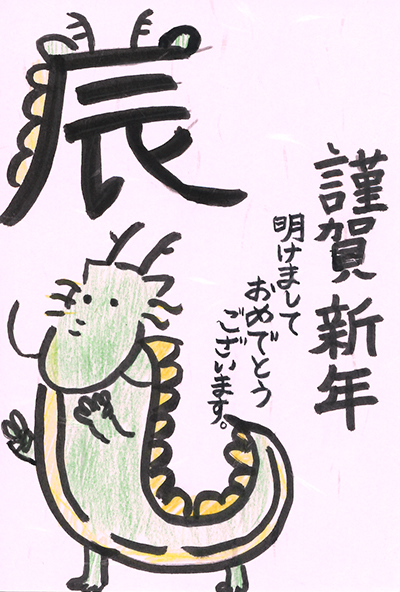 辰
謹賀新年
明けまして
おめでとう
ございます。